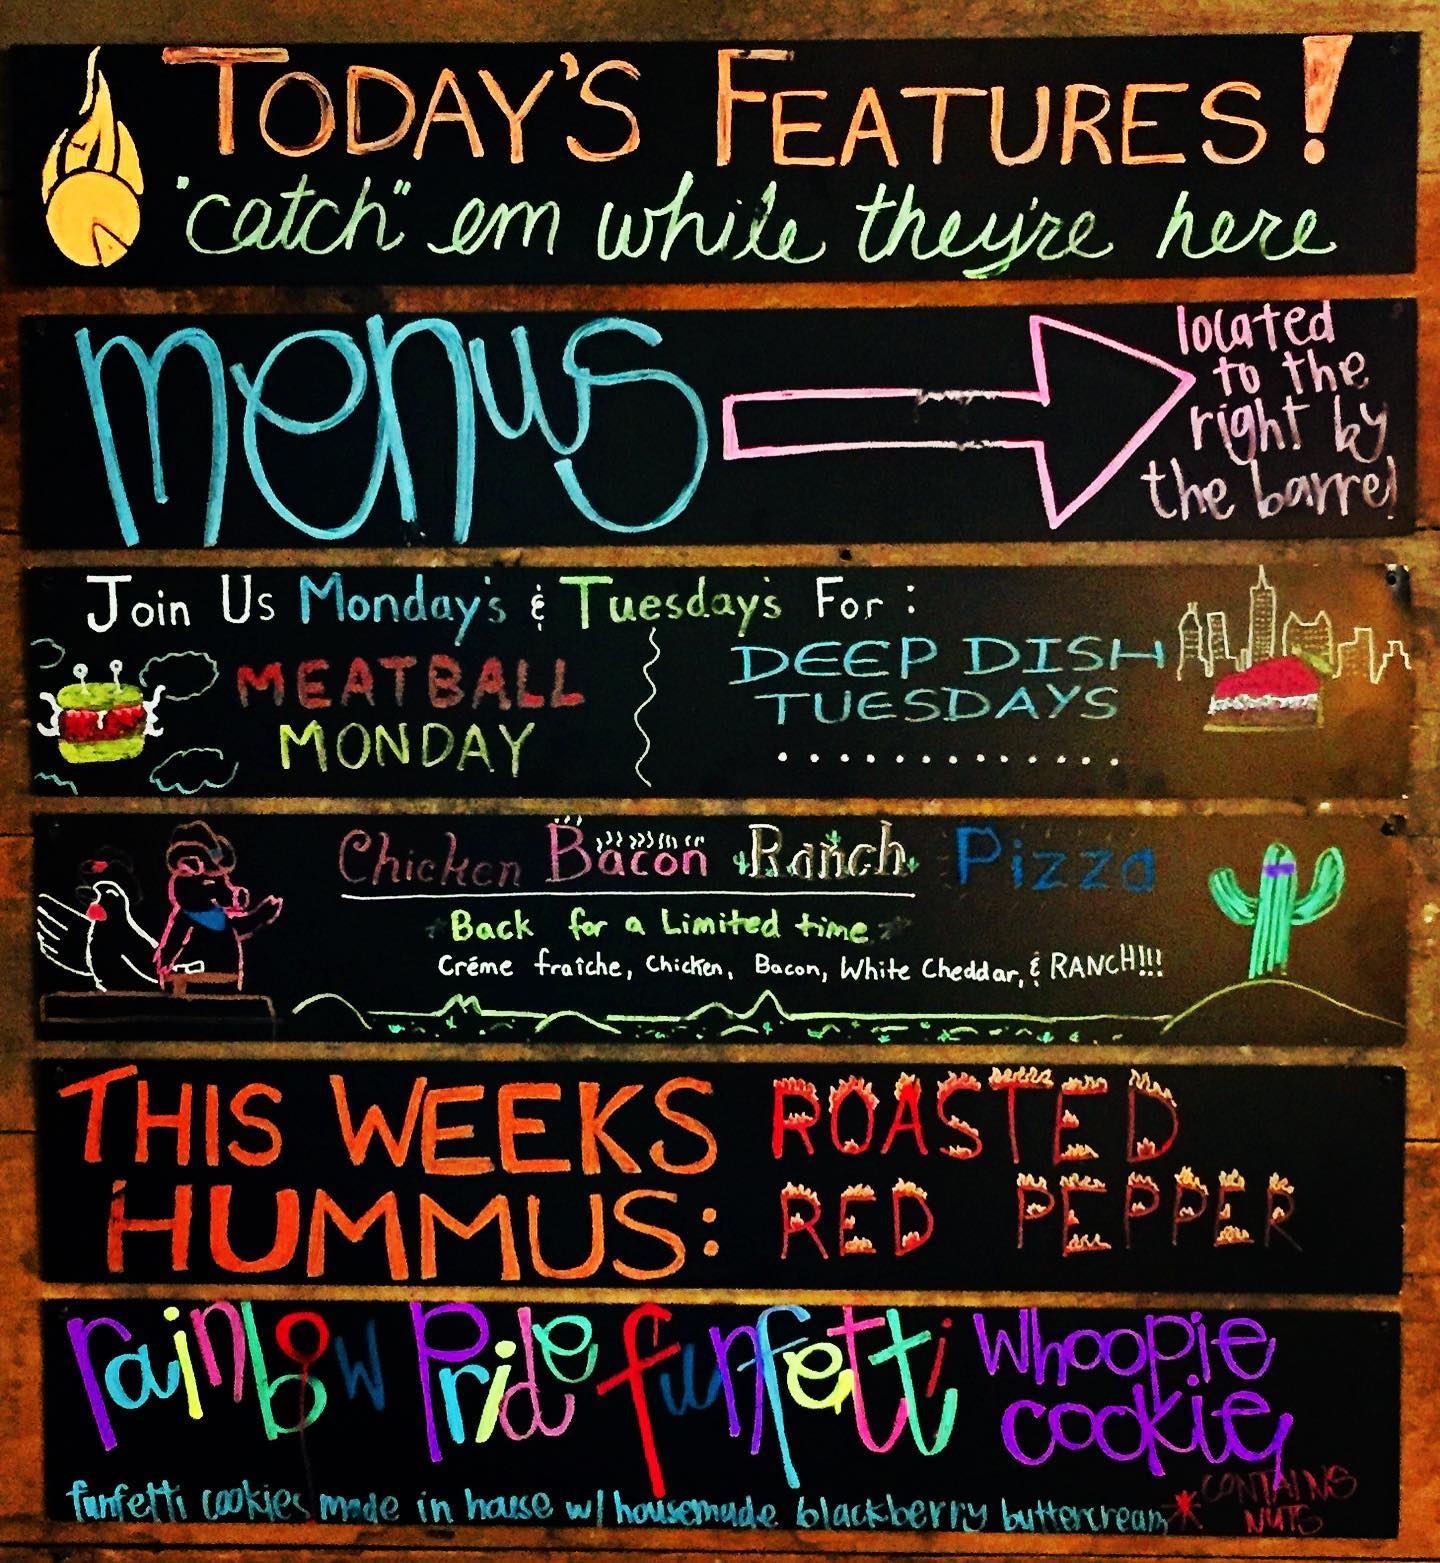 TODAY'S FEATURES!
"catch" em while they're here
menus
located
to the
right by
the barrel
Join Us Monday's & Tuesday's For:
MEATBALL
MONDAY
DEEP DISH
TUESDAYS
.............
Chicken Bacon Ranch Pizza
Back for a Limited time
Créme fraîche, Chicken, Bacon, White Cheddar, & RANCH!!!
THIS WEEKS
HUMMUS:
ROASTED
RED PEPPER
rainbow Pride funfetti whoopie
cookie
funfetti cookies made in house w/ housemade blackberry buttercream
*CONTAINS
NUTS